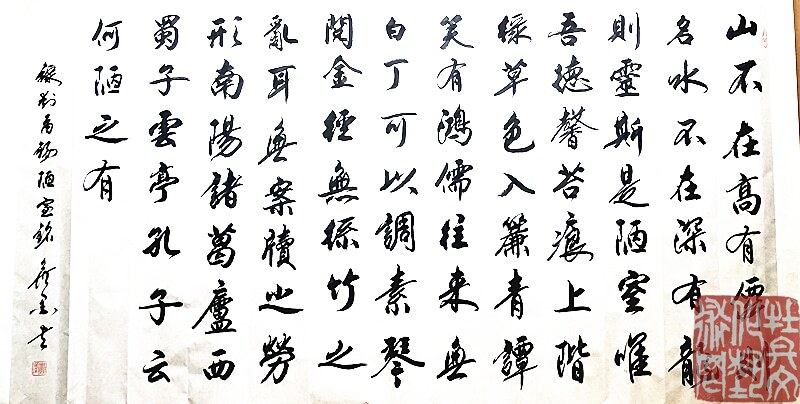 山不在高有僊則
名水不在深有龍
則靈斯是陋室唯
吾德馨苔痕上階
綠草色入簾青譚
笑有鴻儒往來無
白丁可以調素琴
閱金經無絲竹之
亂耳無案牘之勞
形南陽諸葛廬西
蜀子雲亭孔子云
何陋之有
錄劉禹錫陋室銘